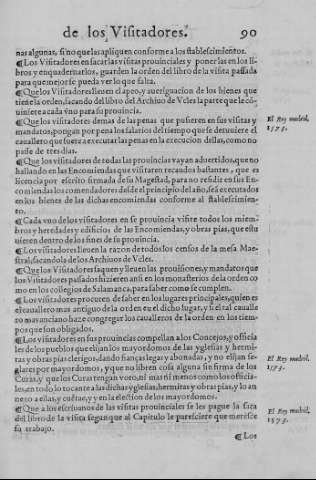 de los Visitadores. 90
nas algunas, sino que las apliquen conforme a los stablescimientos.
¶Los Visitadores en sacar las visitas prouinciales y poner las en los li-
bros y enquadernarlos, guarden la orden del libro de la visita passada
para que mejor se pueda ver lo que falta.
¶Que los Visitadores lleuen el apeo, y aueriguacion de los bienes que
tiene la orden, sacando del libro del Archiuo de Vcles la parte que le cō-
uiniere a cada vno para su prouincia.
¶Que los visitadores demas de las penas que pusieren en sus visitas y
mandatos, pongan por pena los salarios del tiempo que se detuuiere el
cauallero que fuere a executar las penas en la execucion dellas, como no
passe de tres dias.
El Rey madrid.
1573.
¶Que los visitadores de todas las prouincias vayan aduertidos, que no
hallando en las Encomiendas que visitaren recaudos bastantes, que es
licencia por escrito firmada de su Magestad, para no residir en sus En-
comiendas los comendadores desde el principio del año, seā executados
en los bienes de las dichas encomiendas conforme al stablescimien-
to.
¶Cada vno de los visitadores en su prouincia visite todos los miem-
bros y heredades y edificios de las Encomiendas, y obras pias, que estu
uieren dentro de los fines de su prouincia.
¶Los visitadores lleuen la razon de todos los censos de la mesa Mae-
stral, sacandola de los Archiuos de Vcles.
¶Que los Visitadores saquen y lleuen las prouisiones, y mandatos que
los Visitadores passados hizieren ansi en los monasterios de la orden co
mo en los colegios de Salamanca, para saber como se cumplen.
¶Los visitadores procuren de saber en los lugares principales, quien es
el cauallero mas antiguo de la orden en el dicho lugar, y si el tal caualle
ro mas anciano haze congregar los caualleros de la orden en los tiem-
pos que son obligados.
¶Los visitadores en sus prouincias compellan a los Concejos, y officia
les de los pueblos que elijan los mayordomos de las yglesias y hermi-
tas y obras pias clerigos, dando fianças legas y abonadas, y no elijan se-
glares por mayordomos, y que no libren cosa alguna sin firma de los
Curas, y que los Curas tengan voto, ni mas ni menos como los officia-
les, en todo lo tocante a las dichas yglesias, hermitas y obras pias, y lo an
nexo a ellas, y cuētas, y en la election de los mayordomos.
El Rey madrid.
1573.
¶Que a los escriuanos de las visitas prouinciales se les pague la saca
del libro de la visita segun que al Capitulo le paresciere que meresce
su trabajo.
El Rey madrid,
1573.
¶Los